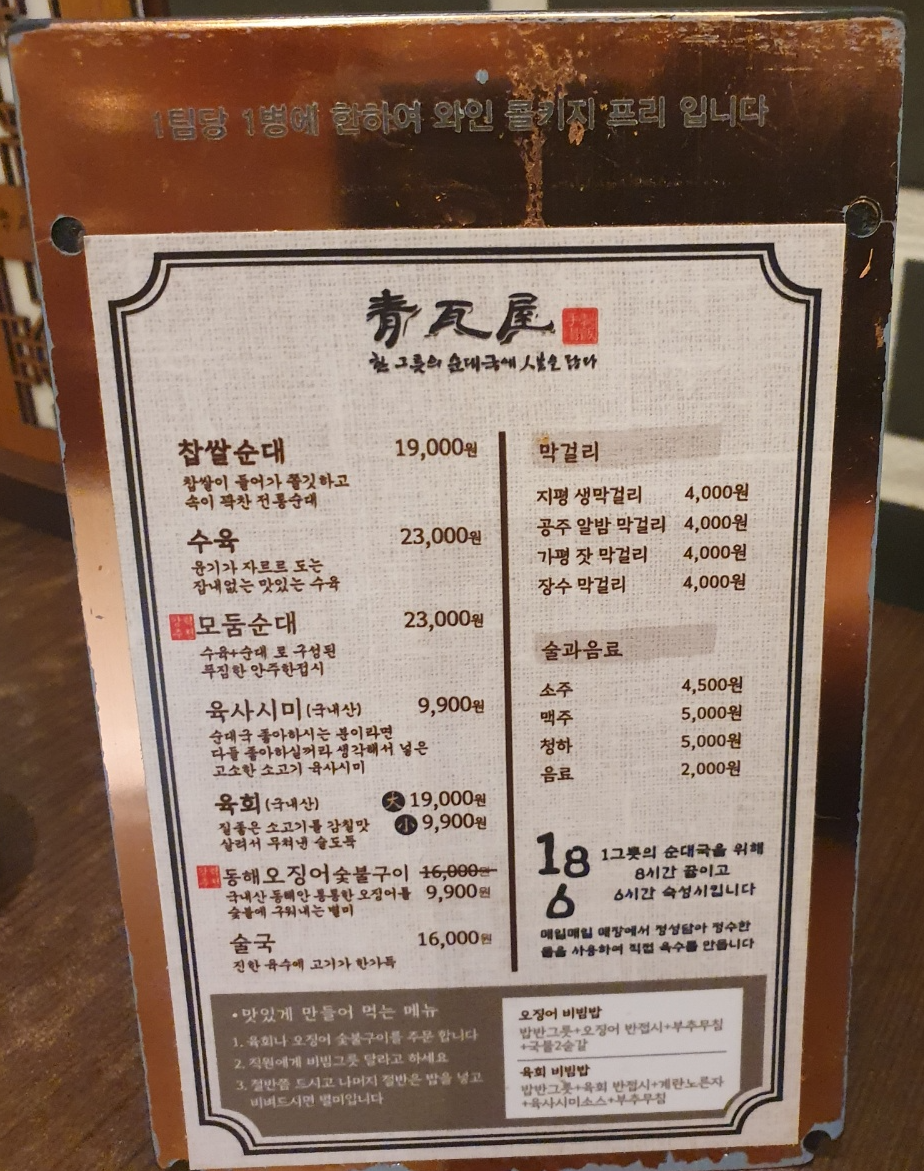 1팀당 1병에 한하여 와인 콜키지 프리 입니다
青瓦屋
한 그릇의 순대국에 人生을 담다
찹쌀순대 19,000원
찹쌀이 들어가 쫄깃하고
속이 꽉찬 전통순대
수육 23,000원
윤기가 자르르 도는
잡내없는 맛있는 수육
강력추천 모둠순대 23,000원
수육+순대 로 구성된
푸짐한 안주한접시
육사시미(국내산) 9,900원
순대국 좋아하시는 분이라면
다들 좋아하실꺼라 생각해서 넣은
고소한 소고기 육사시미
육회(국내산) 大 19,000원
小 9,900원
질좋은 소고기를 감칠맛
살려서 무쳐낸 술도둑
강력추천 동해오징어숯불구이 16,000원
국내산 동해안 통통한 오징어를 9,900원
숯불에 구워내는 별미
술국 16,000원
진한 육수에 고기가 한가득
막걸리
지평 생막걸리 4,000원
공주 알밤 막걸리 4,000원
가평 잣 막걸리 4,000원
장수 막걸리 4,000원
술과음료
소주 4,500원
맥주 5,000원
청하 5,000원
음료 2,000원
186
1그릇의 순대국을 위해
8시간 끓이고
6시간 숙성시킵니다
매일매일 매장에서 정성담아 정수한
물을 사용하여 직접 육수를 만듭니다
•맛있게 만들어 먹는 메뉴
1. 육회나 오징어 숯불구이를 주문 합니다
2. 직원에게 비빔그릇 달라고 하세요
3. 절반쯤 드시고 나머지 절반은 밥을 넣고
비벼드시면 별미입니다
오징어 비빔밥
밥반그릇+오징어 반접시+부추무침
+국물2숟갈
육회 비빔밥
밥반그릇+육회 반접시+계란노른자
+육사시미소스+부추무침